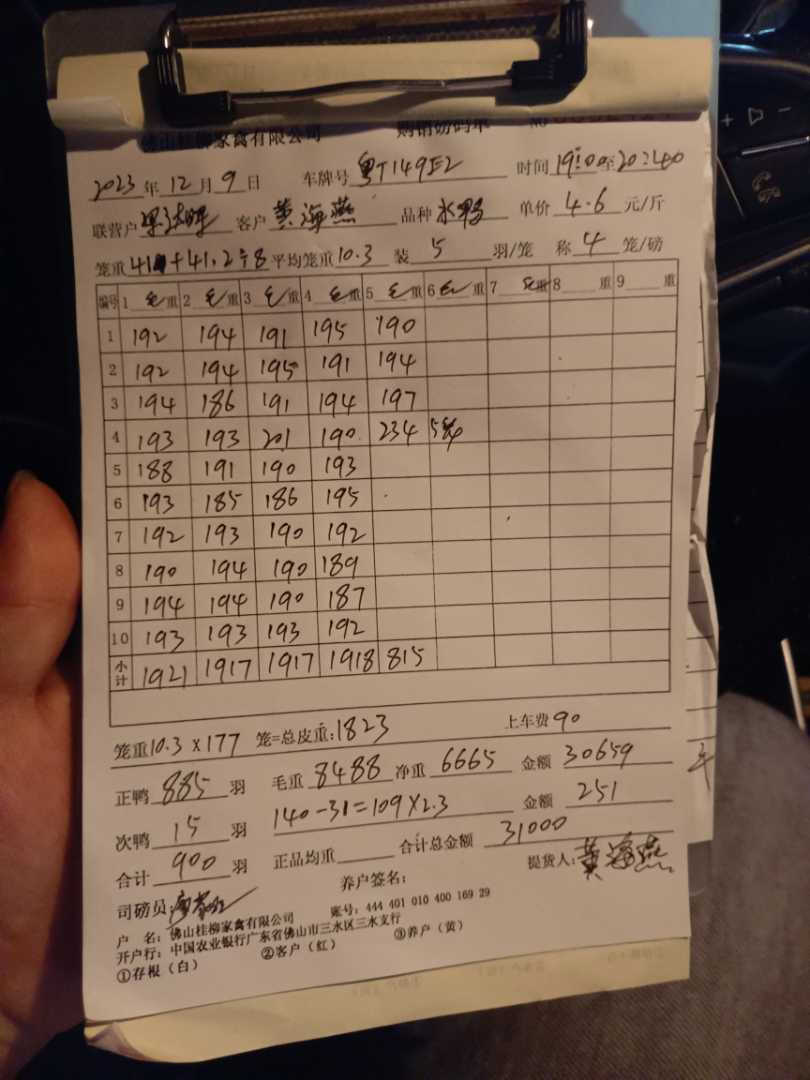 佛山桂柳家禽有限公司 购销磅码单 No
2023年12月9日 车牌号 粤T149E2 时间 19:00至20:40
联营户 客户 黄海燕 品种 水鸭 单价 4.6 元/斤
笼重 41+41.2÷8 平均笼重 10.3 装 5 羽/笼 称 4 笼/磅
编号 1 毛重 2 毛重 3 毛重 4 毛重 5 毛重 6 重 7 重 8 重 9 重
1 192 194 191 195 190
2 192 194 195 191 194
3 194 186 191 194 197
4 193 193 201 190 234
5 188 191 190 193
6 193 185 186 195
7 192 193 190 192
8 190 194 190 189
9 194 194 190 187
10 193 193 193 192
小计 1921 1917 1917 1918 815
笼重 10.3×177 笼=总皮重:1823 上车费 90
正鸭 885 羽 毛重 8488 净重 6665 金额 30659
次鸭 15 羽 140-31=109×2.3 金额 251
合计 900 羽 正品均重 合计总金额 31000
司磅员 养户签名: 提货人: 黄海燕
户 名: 佛山桂柳家禽有限公司 账号: 444 401 010 400 169 29
开户行: 中国农业银行广东省佛山市三水区三水支行
①存根（白） ②客户（红） ③养户（黄）